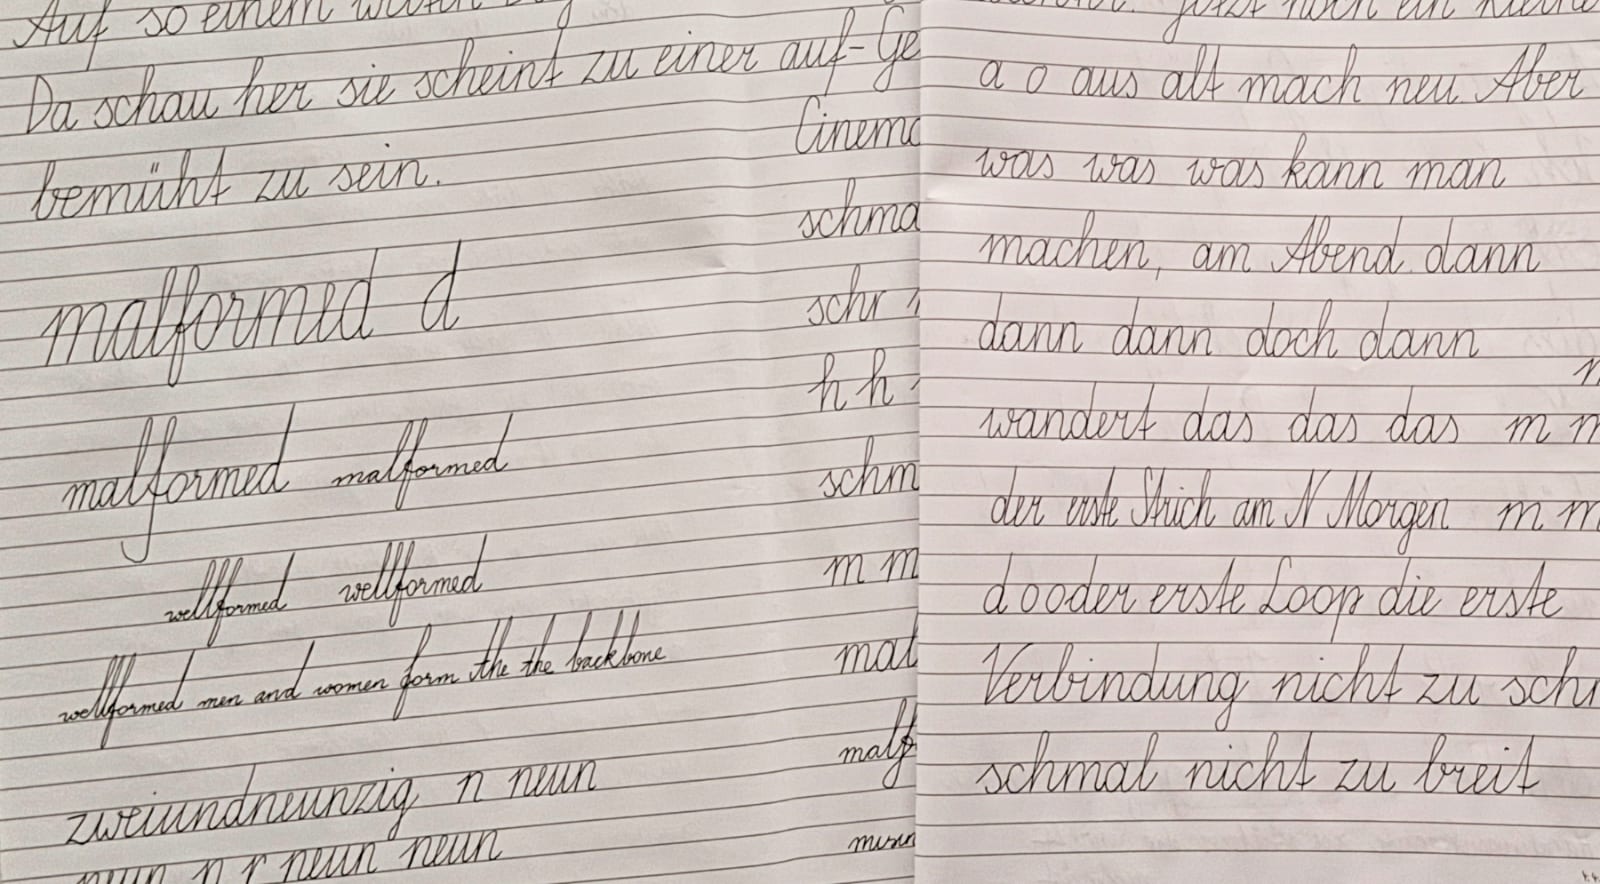 Auf so einem
Da schau her sie scheint zu einer auf-Ge
bemüht zu sein.
malformed d
malformed malformed
wellformed wellformed
wellformed men and women form the the backbone
zweiundneunzig n neun
neun n r neun neun
Cinema
schma
schr
h h
schm
m m
mal
malf
jetzt noch ein kleine
a o aus alt mach neu Aber
was was was kann man
machen, am Abend dann
dann dann doch dann
n
wandert das das das m n
der erste Strich am N Morgen m m
d o oder erste Loop die erste
Verbindung nicht zu schr
schmal nicht zu breit